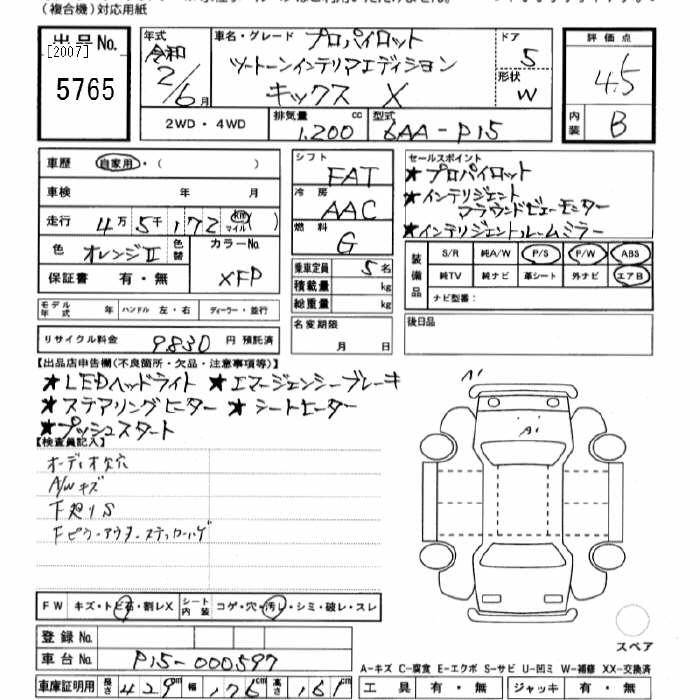 (複合機)対応用紙
出品No.
[2007]
5765
年式
令和
2/6月
車名・グレード プロパイロット
ツートーンインテリアエディション
キックス X
ドア
5
形状
W
評価点
4.5
内装
B
2WD・4WD
排気量 cc
1.200
型式
6AA-P15
車歴 自家用・( )
車検 年 月
走行 4万5千172 km マイル ( )
色 オレンジII 色替
カラーNo.
XFP
保証書 有・無
モデル年式 年 ハンドル 左・右 ディーラー・並行
リサイクル料金 9830 円 預託済
シフト
FAT
冷房
AAC
燃料
G
乗車定員 5名
積載量 kg
総重量 kg
名変期限
月 日
セールスポイント
★プロパイロット
★インテリジェント
アラウンドビューモニター
★インテリジェントルームミラー
装備品
S/R 純A/W P/S P/W ABS
純TV 純ナビ 革シート 外ナビ エアB
ナビ型番:
後日品
【出品店申告欄(不良箇所・欠品・注意事項等)】
★LEDヘッドライト ★エマージェンシーブレーキ
★ステアリングヒーター ★シートヒーター
★プッシュスタート
【検査員記入】
オーディオ欠穴
A/Wキズ
下廻りS
Fピラーアウターステッカーハゲ
A1
A1
FW キズ・トビ石・割レX シート内装 コゲ・穴・汚レ・シミ・破レ・スレ
登録No.
車台No. P15-000597
車庫証明用 長さ 429cm 幅 176cm 高さ 161cm
スペア
A-キズ C-腐食 E-エクボ S-サビ U-凹ミ W-補修 XX-交換済
工具 有・無 ジャッキ 有・無